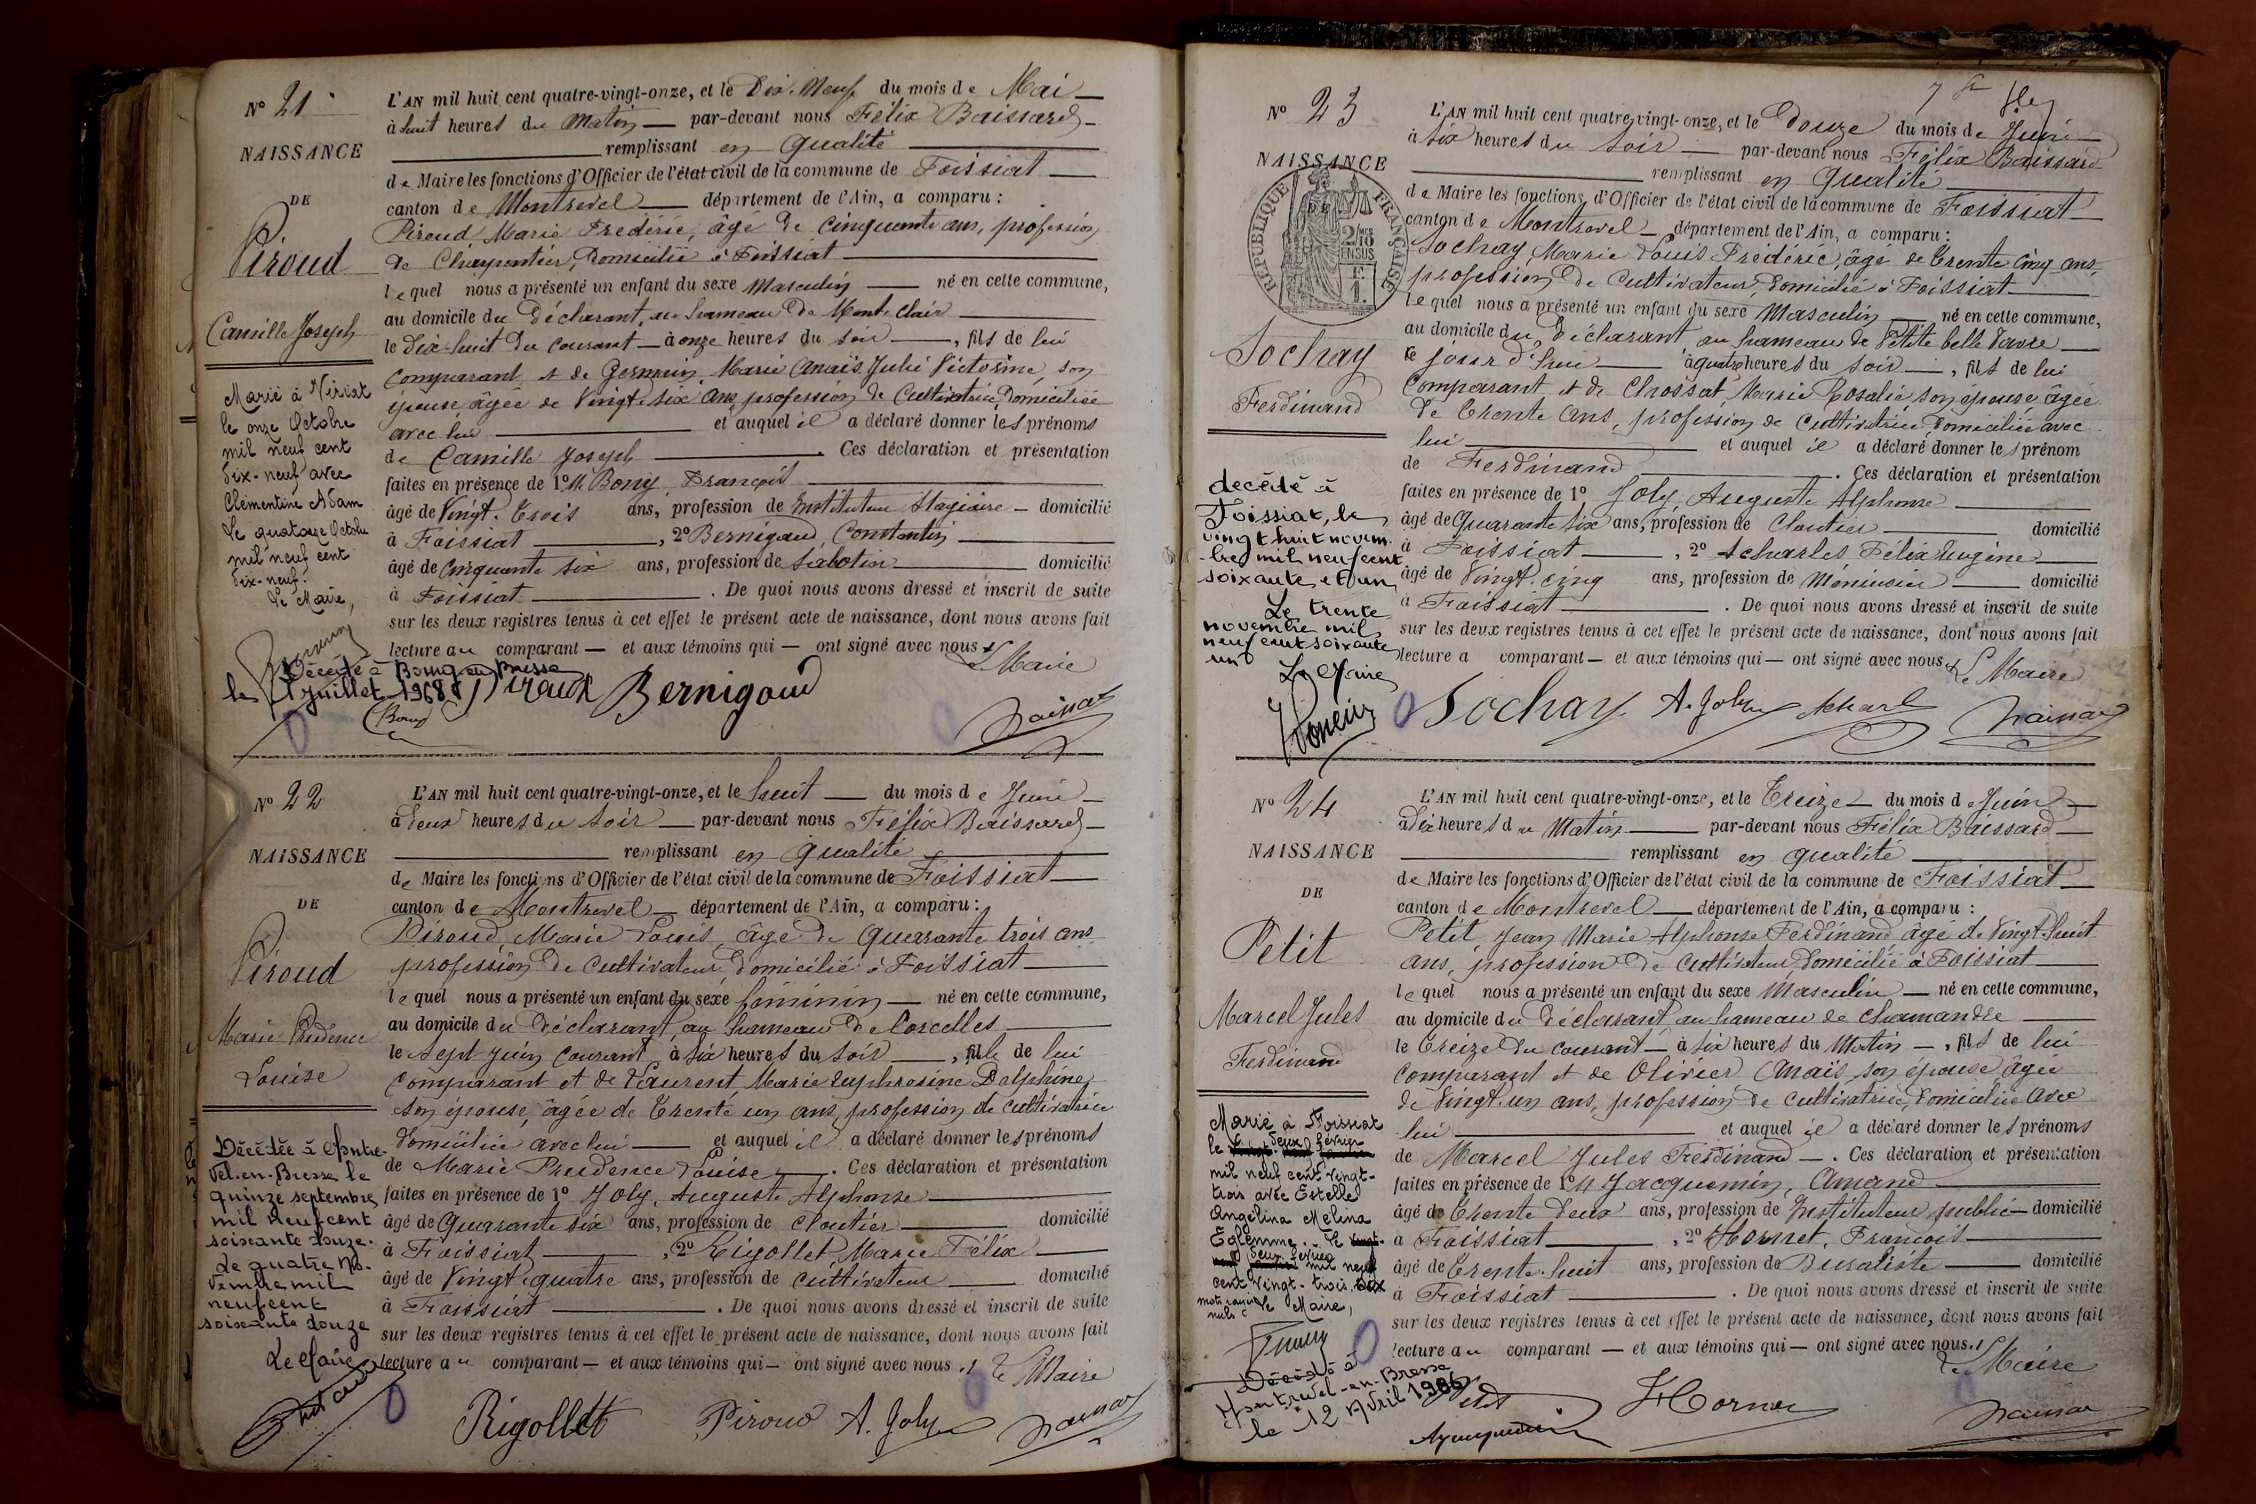 N° 21
NAISSANCE
DE
Piroud
Camille Joseph
Marié à Viriat
le onze Octobre
mil neuf cent
dix-neuf avec
Clémentine Adam
Le quatorze Octobre
mil neuf cent
dix-neuf.
Le Maire,
Décédé à Bourg en Bresse
le 21 juillet 1968
L'AN mil huit cent quatre-vingt-onze, et le Dix-Neuf du mois de Mai
à huit heures du Matin par-devant nous Félix Baissard
remplissant en qualité
de Maire les fonctions d'Officier de l'état civil de la commune de Foissiat
canton de Montrevel département de l'Ain, a comparu :
Piroud Marie Frédéric, âgé de cinquante ans, profession
de Charpentier, Domicilié à Foissiat
lequel nous a présenté un enfant du sexe Masculin né en cette commune,
au domicile du Déclarant, au hameau de Mont-clair
le dix-huit du courant à onze heures du soir, fils de lui
comparant et de Germain, Marie Anaïs Julie Victorine, son
épouse âgée de Vingt-six ans, profession de Cultivatrice Domiciliée
avec lui et auquel il a déclaré donner les prénoms
de Camille Joseph. Ces déclaration et présentation
faites en présence de 1° M. Bony, François
âgé de Vingt-trois ans, profession de Instituteur Stagiaire domicilié
à Foissiat, 2° Bernigaud, Constantin
âgé de Cinquante six ans, profession de Sabotier domicilié
à Foissiat. De quoi nous avons dressé et inscrit de suite
sur les deux registres tenus à cet effet le présent acte de naissance, dont nous avons fait
lecture au comparant et aux témoins qui ont signé avec nous
Le Maire
Piroud Bernigaud
N° 22
NAISSANCE
DE
Piroud
Marie Prudence
Louise
Décédée à Montre-
vel-en-Bresse le
quinze septembre
mil neuf cent
soixante douze.
Le quatre no-
vembre mil
neuf cent
soixante douze
Le Maire
L'AN mil huit cent quatre-vingt-onze, et le huit du mois de Juin
à deux heures du soir par-devant nous Félix Baissard
remplissant en qualité
de Maire les fonctions d'Officier de l'état civil de la commune de Foissiat
canton de Montrevel département de l'Ain, a comparu :
Piroud, Marie Louis, âgé de Quarante trois ans
profession de Cultivateur Domicilié à Foissiat
lequel nous a présenté un enfant du sexe féminin né en cette commune,
au domicile du Déclarant, au hameau de Corcelles
le sept Juin courant à six heures du soir, fille de lui
comparant et de Laurent Marie Euphrosine Dalphine
son épouse, âgée de trente un ans, profession de cultivatrice
domiciliée avec lui et auquel il a déclaré donner les prénoms
de Marie Prudence Louise. Ces déclaration et présentation
faites en présence de 1° Joly, Auguste Alphonse
âgé de Quarante six ans, profession de cloutier domicilié
à Foissiat, 2° Rigollet, Marie Félix
âgé de Vingt-quatre ans, profession de cultivateur domicilié
à Foissiat. De quoi nous avons dressé et inscrit de suite
sur les deux registres tenus à cet effet le présent acte de naissance, dont nous avons fait
lecture au comparant et aux témoins qui ont signé avec nous
Le Maire
Rigollet Piroud A. Joly
N° 23
NAISSANCE
RÉPUBLIQUE FRANÇAISE
2/10 EN SUS
Sochay
Ferdinand
décédé à
Foissiat, le
vingt huit novem-
bre mil neuf cent
soixante et un
Le trente
novembre mil
neuf cent soixante
un
Le Maire
L'AN mil huit cent quatre-vingt-onze, et le Douze du mois de Juin
à six heures du soir par-devant nous Félix Baissard
remplissant en qualité
de Maire les fonctions d'Officier de l'état civil de la commune de Foissiat
canton de Montrevel département de l'Ain, a comparu :
Sochay, Marie Louis Frédéric, âgé de trente cinq ans,
profession de cultivateur, domicilié à Foissiat
lequel nous a présenté un enfant du sexe Masculin né en cette commune,
au domicile du Déclarant, au hameau de Petite belle Vavre
ce jour d'hui à quatre heures du soir, fils de lui
comparant et de Chossat Marie Rosalie, son épouse âgée
de trente ans, profession de cultivatrice, domiciliée avec
lui et auquel il a déclaré donner les prénom
de Ferdinand. Ces déclaration et présentation
faites en présence de 1° Joly, Auguste Alphonse
âgé de Quarante six ans, profession de Cloutier domicilié
à Foissiat, 2° Acharles Félix Eugène
âgé de Vingt-cinq ans, profession de Menuisier domicilié
à Foissiat. De quoi nous avons dressé et inscrit de suite
sur les deux registres tenus à cet effet le présent acte de naissance, dont nous avons fait
lecture a comparant et aux témoins qui ont signé avec nous
Le Maire
Sochay A. Joly
N° 24
NAISSANCE
DE
Petit
Marcel Jules
Ferdinand
Marié à Foissiat
le deux février
mil neuf cent vingt-
trois avec Estelle
Angelina Melina
Eglemme. Le
deux février mil neuf
cent vingt-trois.
Le Maire,
Décédé à
Montrevel-en-Bresse
le 12 Avril 1986
L'AN mil huit cent quatre-vingt-onze, et le Treize du mois de Juin
à dix heures du Matin par-devant nous Félix Baissard
remplissant en qualité
de Maire les fonctions d'Officier de l'état civil de la commune de Foissiat
canton de Montrevel département de l'Ain, a comparu :
Petit Jean Marie Alphonse Ferdinand âgé de Vingt-huit
ans, profession de cultivateur domicilié à Foissiat
lequel nous a présenté un enfant du sexe Masculin né en cette commune,
au domicile du Déclarant au hameau de Chamandre
le Treize du courant à six heures du Matin, fils de lui
comparant et de Olivier Anaïs, son épouse âgée
de Vingt-un ans, profession de cultivatrice, domiciliée avec
lui et auquel il a déclaré donner les prénoms
de Marcel Jules Ferdinand. Ces déclaration et présentation
faites en présence de 1° M Jacquemin, Amand
âgé de Trente deux ans, profession de Instituteur public domicilié
à Foissiat, 2° Hornet, François
âgé de Trente huit ans, profession de Buraliste domicilié
à Foissiat. De quoi nous avons dressé et inscrit de suite
sur les deux registres tenus à cet effet le présent acte de naissance, dont nous avons fait
lecture au comparant et aux témoins qui ont signé avec nous.
Le Maire
Petit